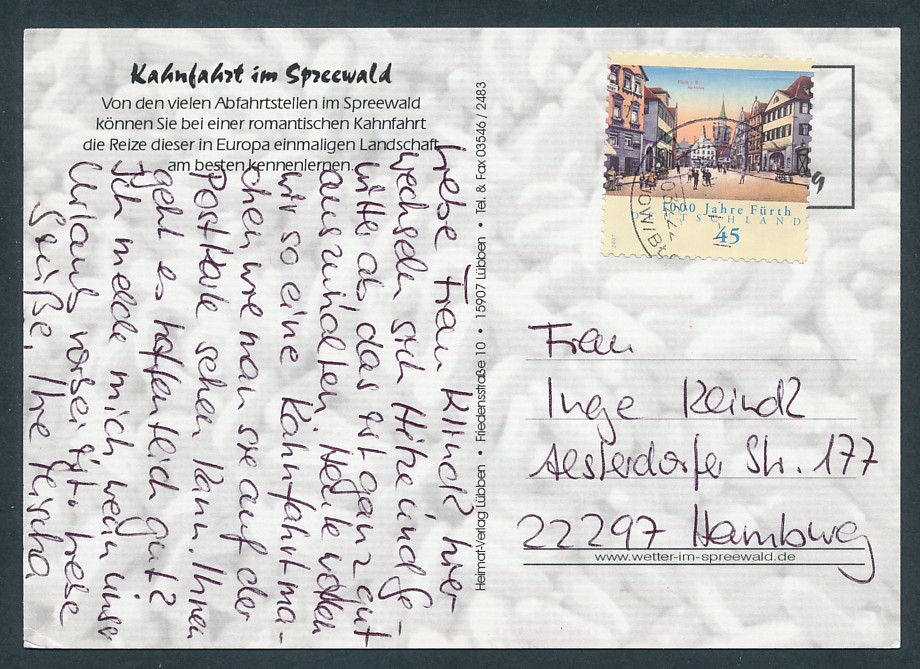 Kahnfahrt im Spreewald
Von den vielen Abfahrtstellen im Spreewald
können Sie bei einer romantischen Kahnfahrt
die Reize dieser in Europa einmaligen Landschaft
am besten kennenlernen.
Liebe Frau Klindt hier
wechseln sich Hitze und Ge-
witter ab, das ist ganz gut
auszuhalten. Heute wollen
wir so eine Kahnfahrt ma-
chen wie man sie auf der
Postkarte sehen kann. Ihnen
geht es hoffentlich gut?
Ich melde mich wenn unser
Urlaub vorbei ist. Liebe
Grüße, Ihre
Heimat-Verlag Lübben • Friedensstraße 10 • 15907 Lübben • Tel. & Fax 03546 / 2483
Fürth i. B.
1000 Jahre Fürth
DEUTSCHLAND
45
2007
Frau
Inge Klindt
Alsterdorfer Str. 177
22297 Hamburg
www.wetter-im-spreewald.de